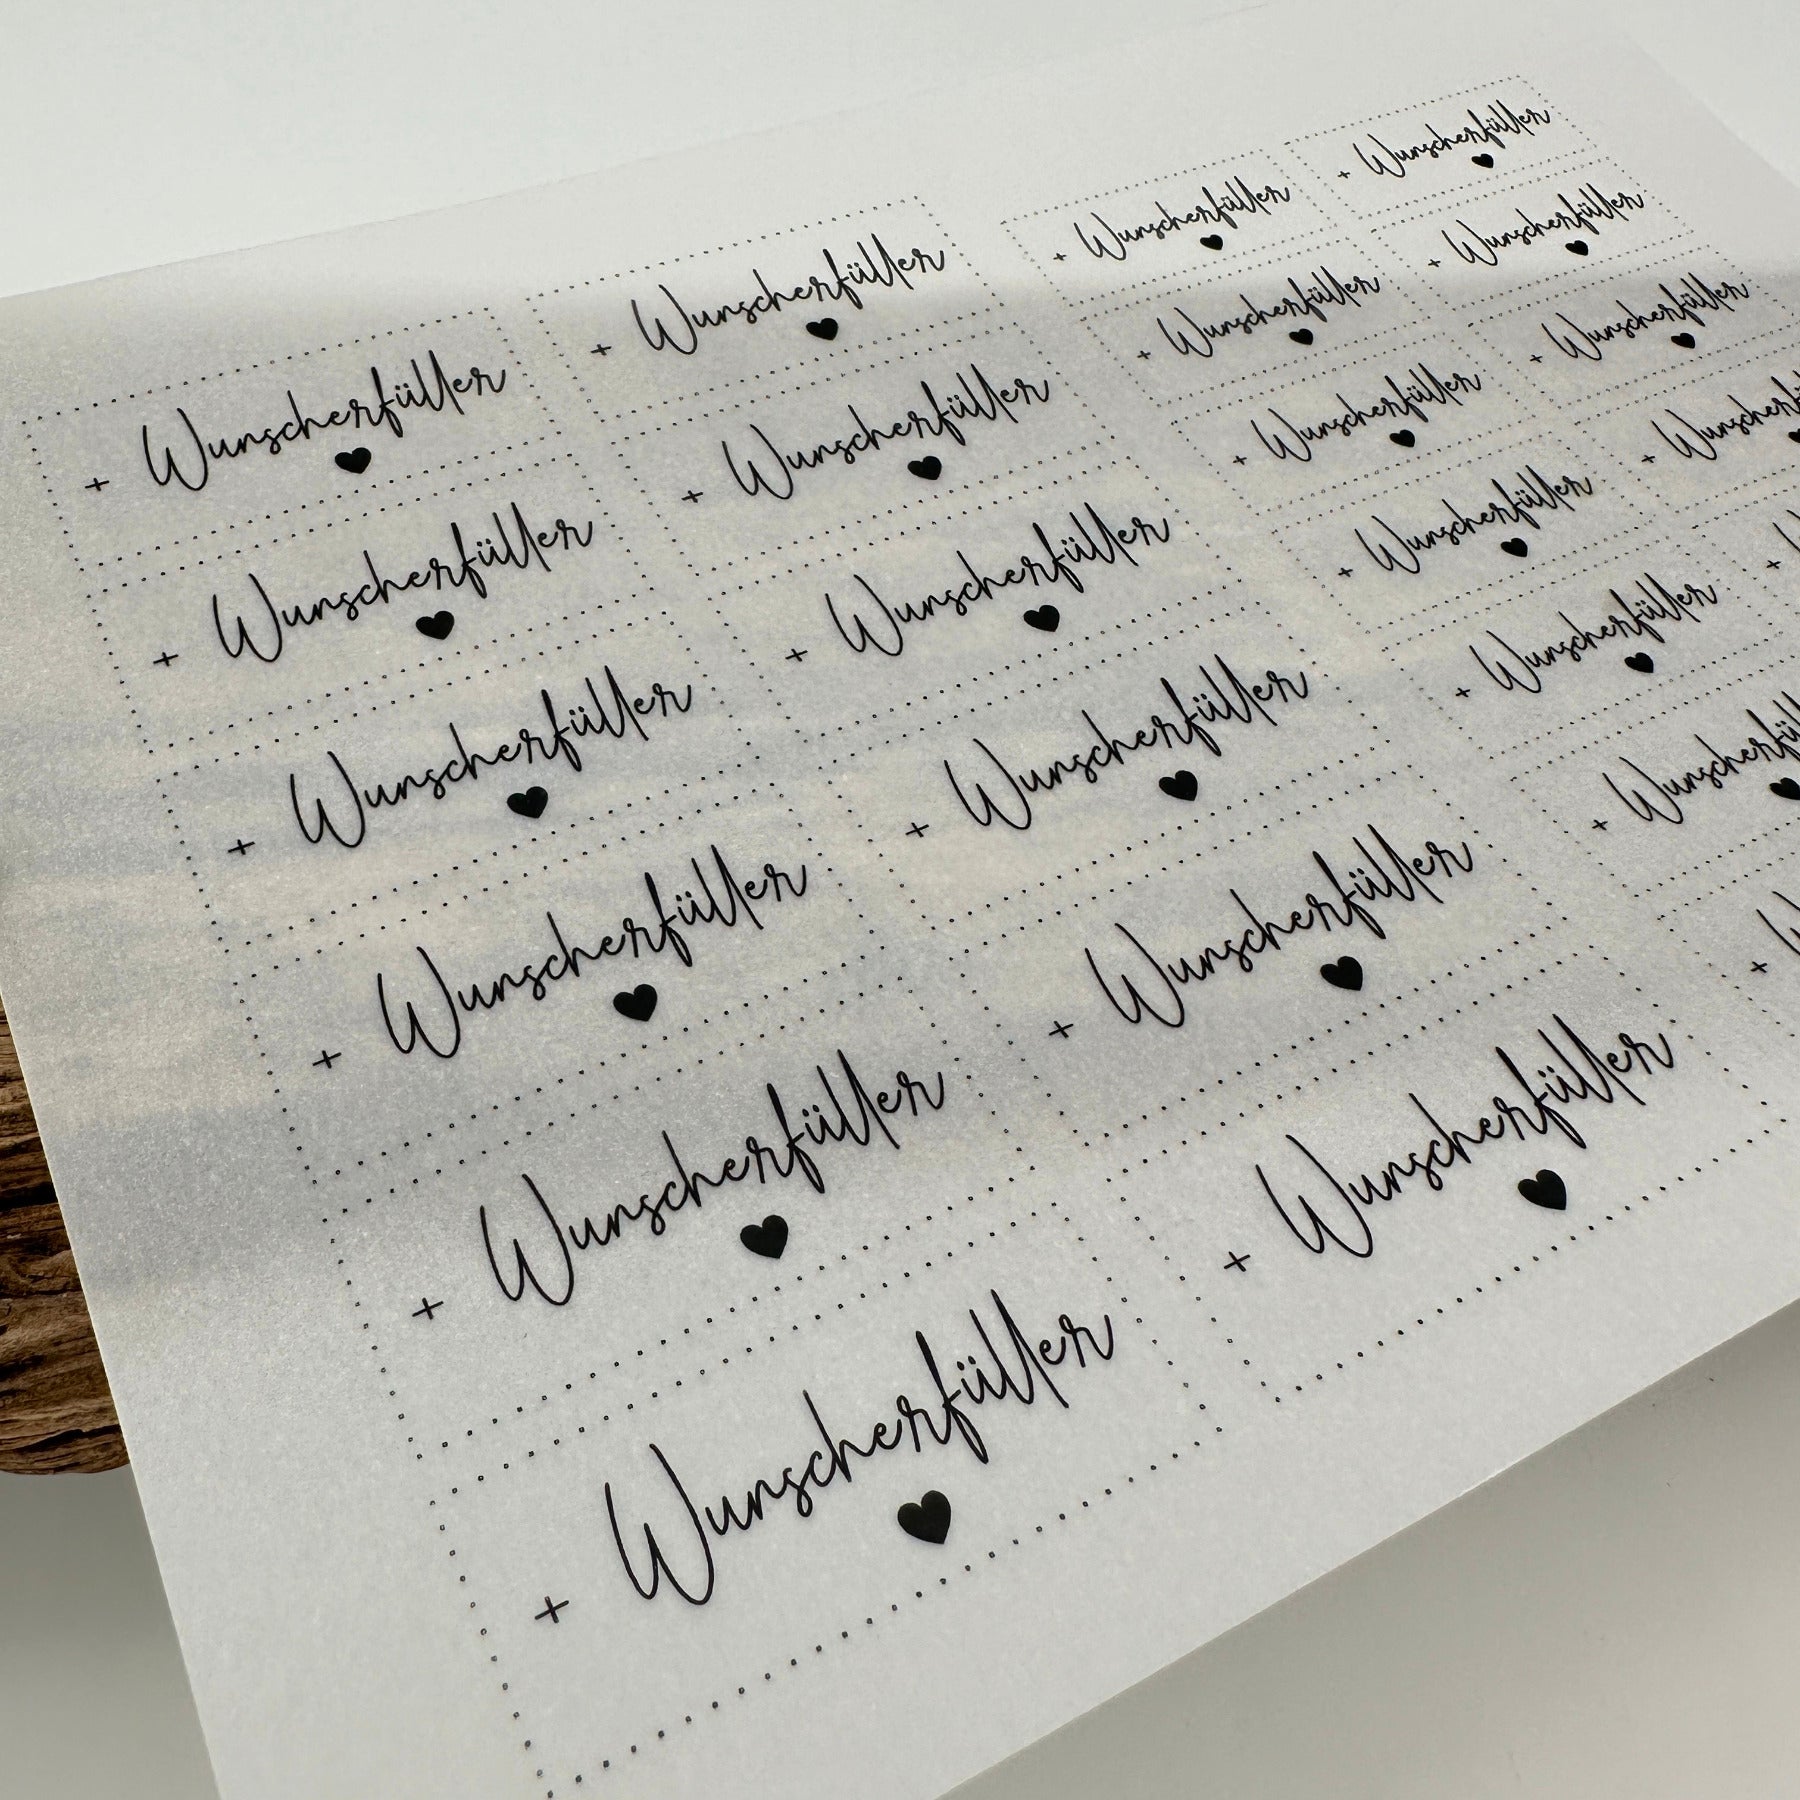 + Wunscherfüller
+ Wunscherfüller
+ Wunscherfüller
+ Wunscherfüller
+ Wunscherfüller
+ Wunscherfüller
+ Wunscherfüller
+ Wunscherfüller
+ Wunscherfüller
+ Wunscherfüller
+ Wunscherfüller
+ Wunscherfüller
+ Wunscherfüller
+ Wunscherfüller
+ Wunscherfüller
+ Wunscherfüller
+ Wunscherfüller
+ Wunscherfüller
+ Wunscherfüller
+ Wunscherfüller